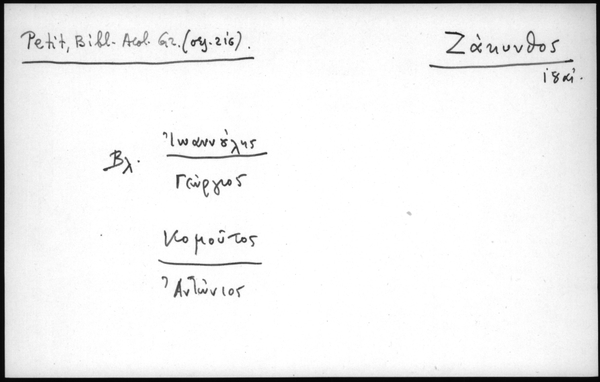 Petit, Bibl. Acol. Gr. (σελ. 216).
Ζάκυνθος
ἰδαί.
Βλ. Ἰωαννούλης
Γεώργιος
Κομοῦτος
Ἀντώνιος